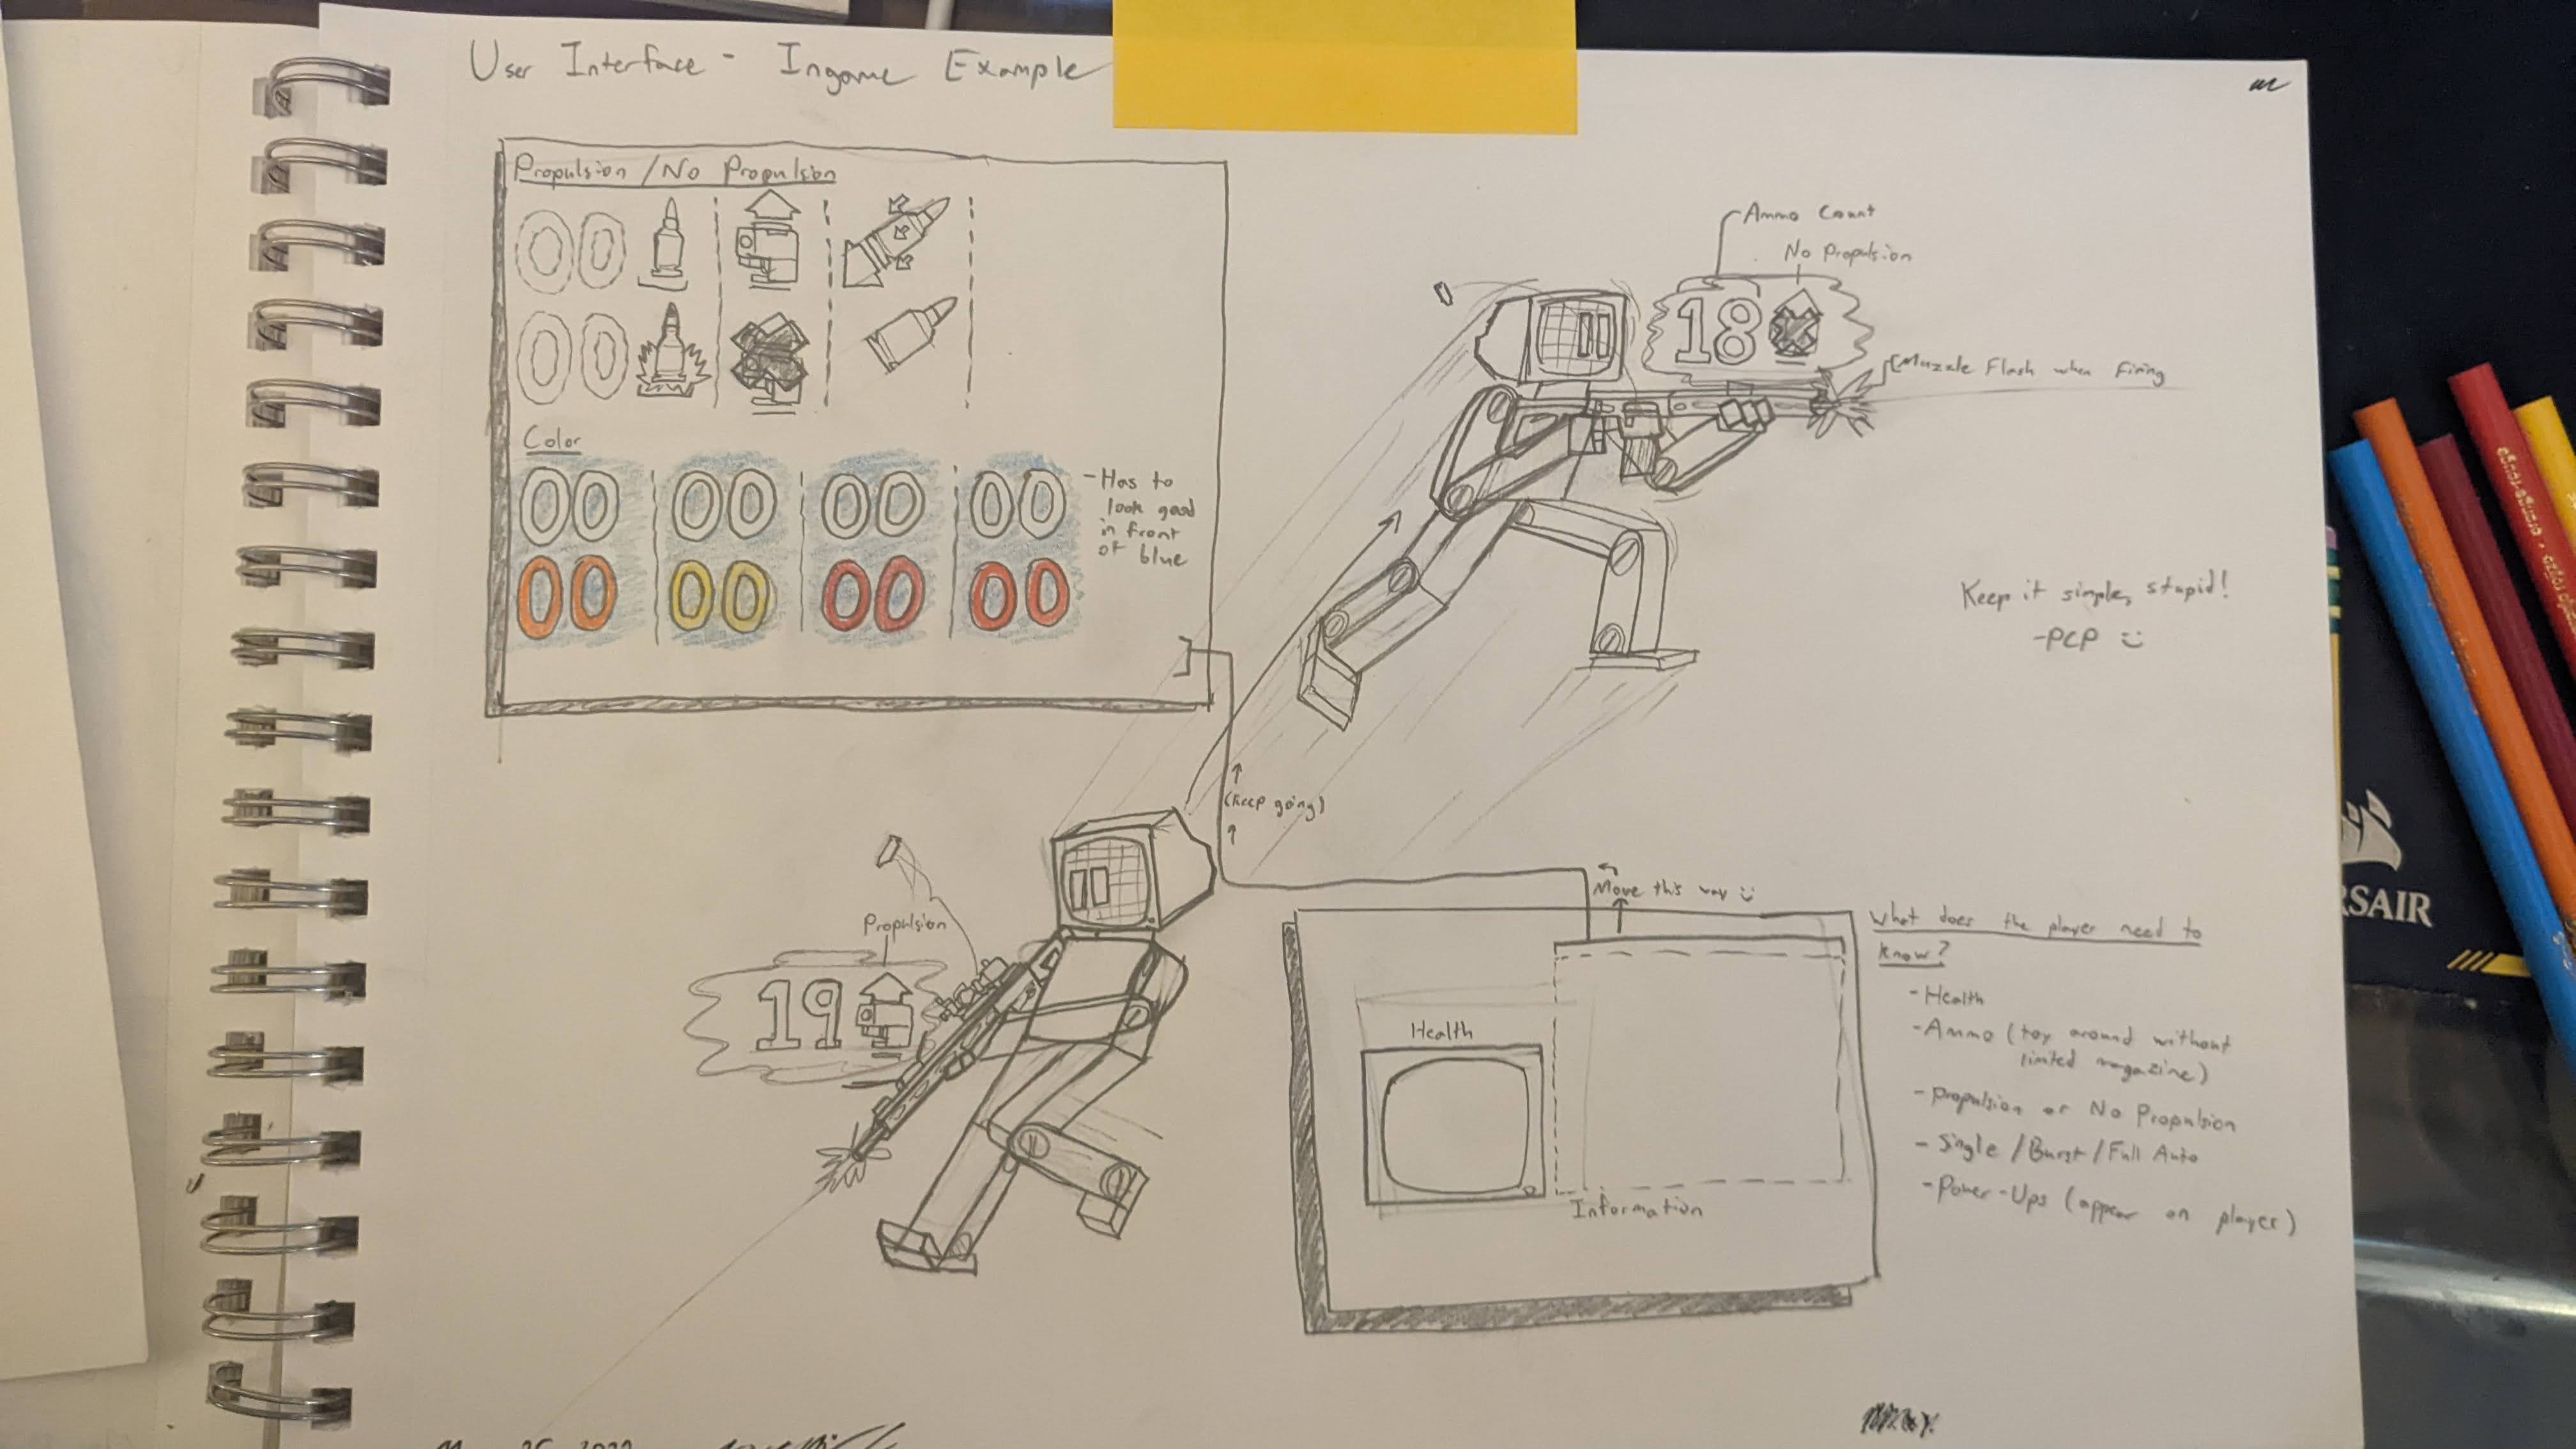 User Interface - Ingame Example
Propulsion / No Propulsion
00
00
Color
00 00 00 00
00 00 00 00
- Has to
look good
in front
of blue
Ammo Count
No Propulsion
18
Muzzle Flash when firing
Keep it simple, stupid!
-PCP :)
(Keep going)
Propulsion
19
Move this way :)
Health
Information
What does the player need to
know?
- Health
- Ammo (toy around without
limited magazine)
- Propulsion or No Propulsion
- Single / Burst / Full Auto
- Power-Ups (appear on player)
RSAIR